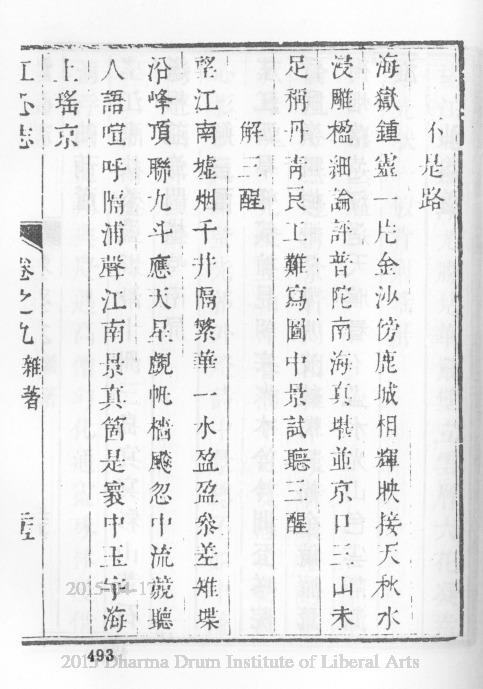 不是路
海嶽鍾靈一片金沙傍鹿城相輝映接天秋水
浸雕楹細論評普陀南海真堪並京口三山未
足稱丹青良工難寫圖中景試聽三醒
解三醒
望江南墟烟千井隔繁華一水盈盈參差雉堞
沿峰頂聯九斗應大星覷帆檣颷忽中流競聽
人語喧呼隔浦聲江南景真箇是寰中玉宇海
上瑤京
江心志
卷之九 雜著
493
2015-04-17
2015 Dharma Drum Institute of Liberal Arts